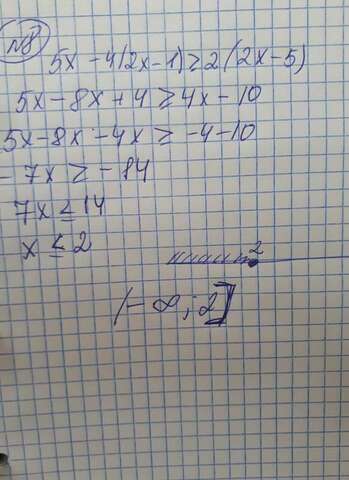 №8
5x - 4(2x-1) ≥ 2(2x-5)
5x - 8x + 4 ≥ 4x - 10
5x - 8x - 4x ≥ -4 - 10
- 7x ≥ - 14
7x ≤ 14
x ≤ 2
2
(-∞; 2]